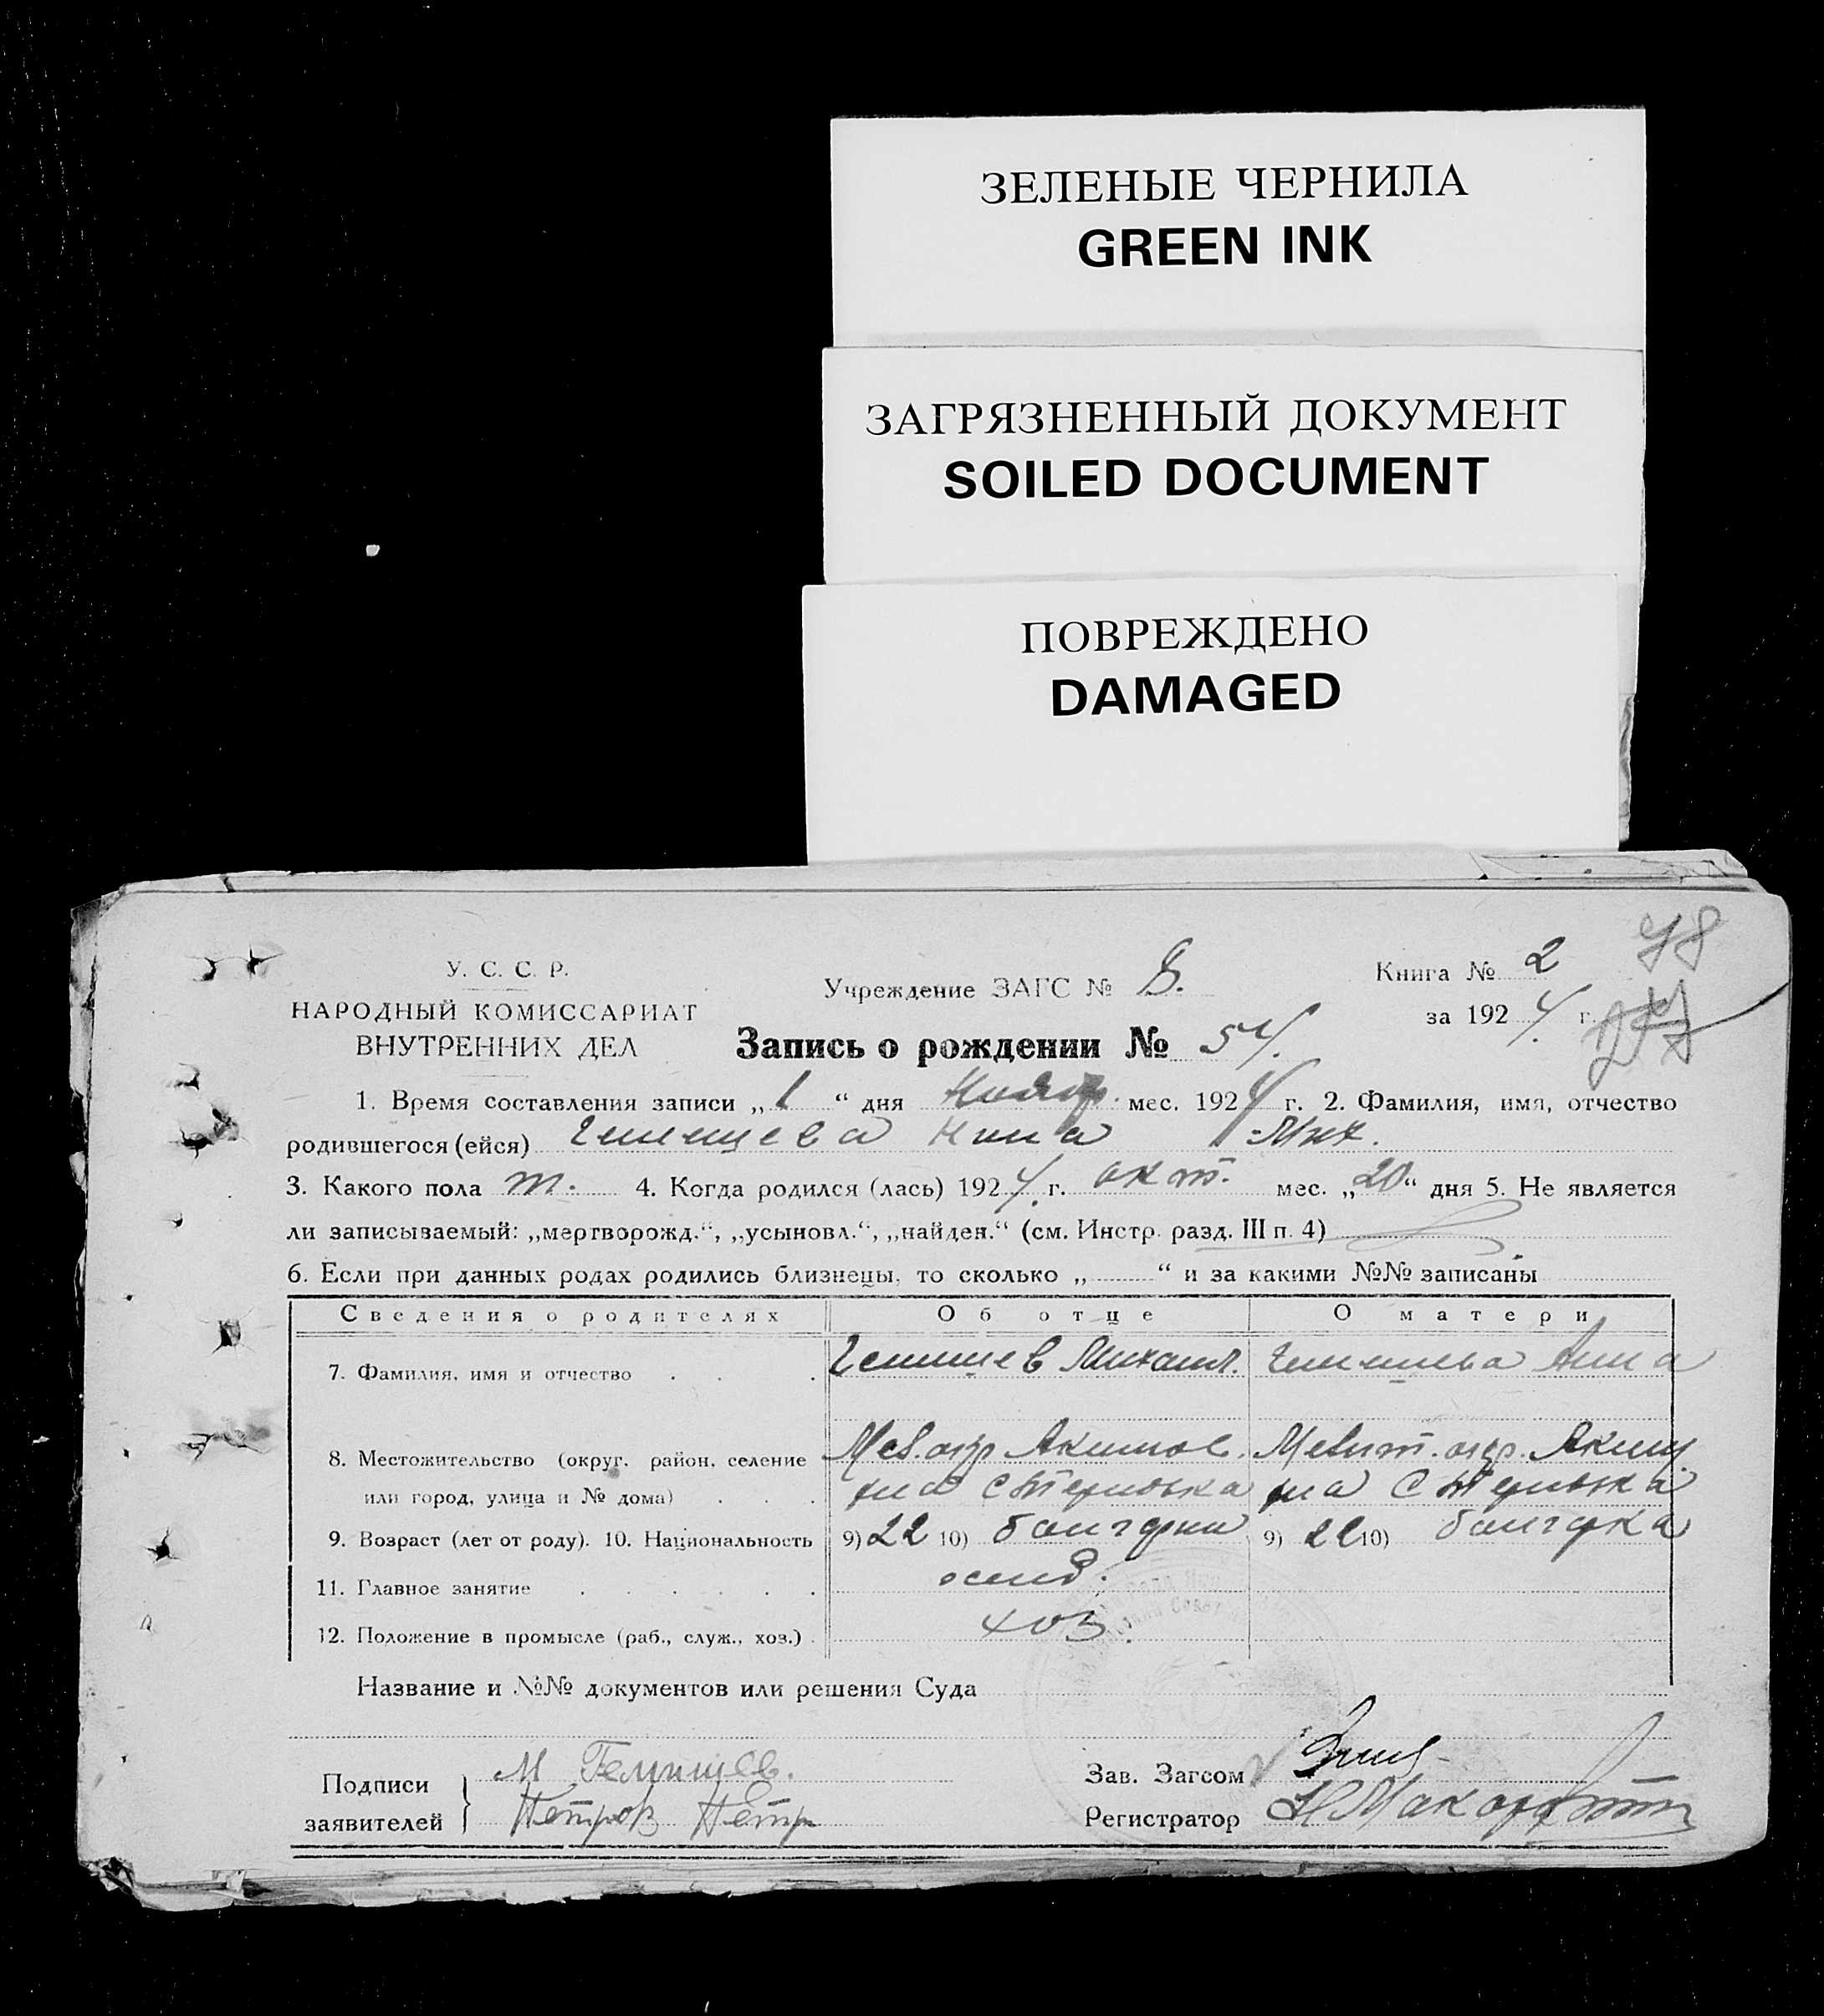 ЗЕЛЕНЫЕ ЧЕРНИЛА
GREEN INK
ЗАГРЯЗНЕННЫЙ ДОКУМЕНТ
SOILED DOCUMENT
ПОВРЕЖДЕНО
DAMAGED
У. С. С. Р.
НАРОДНЫЙ КОМИССАРИАТ
ВНУТРЕННИХ ДЕЛ
Учреждение ЗАГС № 8.
Книга № 2
за 1924 г.
Запись о рождении № 54.
1. Время составления записи „1“ дня Ноябр. мес. 1924 г. 2. Фамилия, имя, отчество
родившегося (ейся) Нина Мих.
3. Какого пола 4. Когда родился (лась) 1924 г. окт. мес. „20“ дня 5. Не является
ли записываемый: „мертворожд.“, „усыновл.“, „найден.“ (см. Инстр. разд. III п. 4)
6. Если при данных родах родились близнецы, то сколько „ “ и за какими №№ записаны
Сведения о родителях Об отце О матери
7. Фамилия, имя и отчество Михаил. Анна
8. Местожительство (округ, район, селение Мел. окр Акимов. Мелит. окр. Аким.
или город, улица и № дома) на С Терновка на С Терновка
9. Возраст (лет от роду). 10. Национальность 9) 22 10) болгарин 9) 22 10) болгарка
11. Главное занятие
12. Положение в промысле (раб., служ., хоз.) хоз.
Название и №№ документов или решения Суда
Подписи заявителей
М Гемишев.
Петров Петр
Зав. Загсом
Регистратор